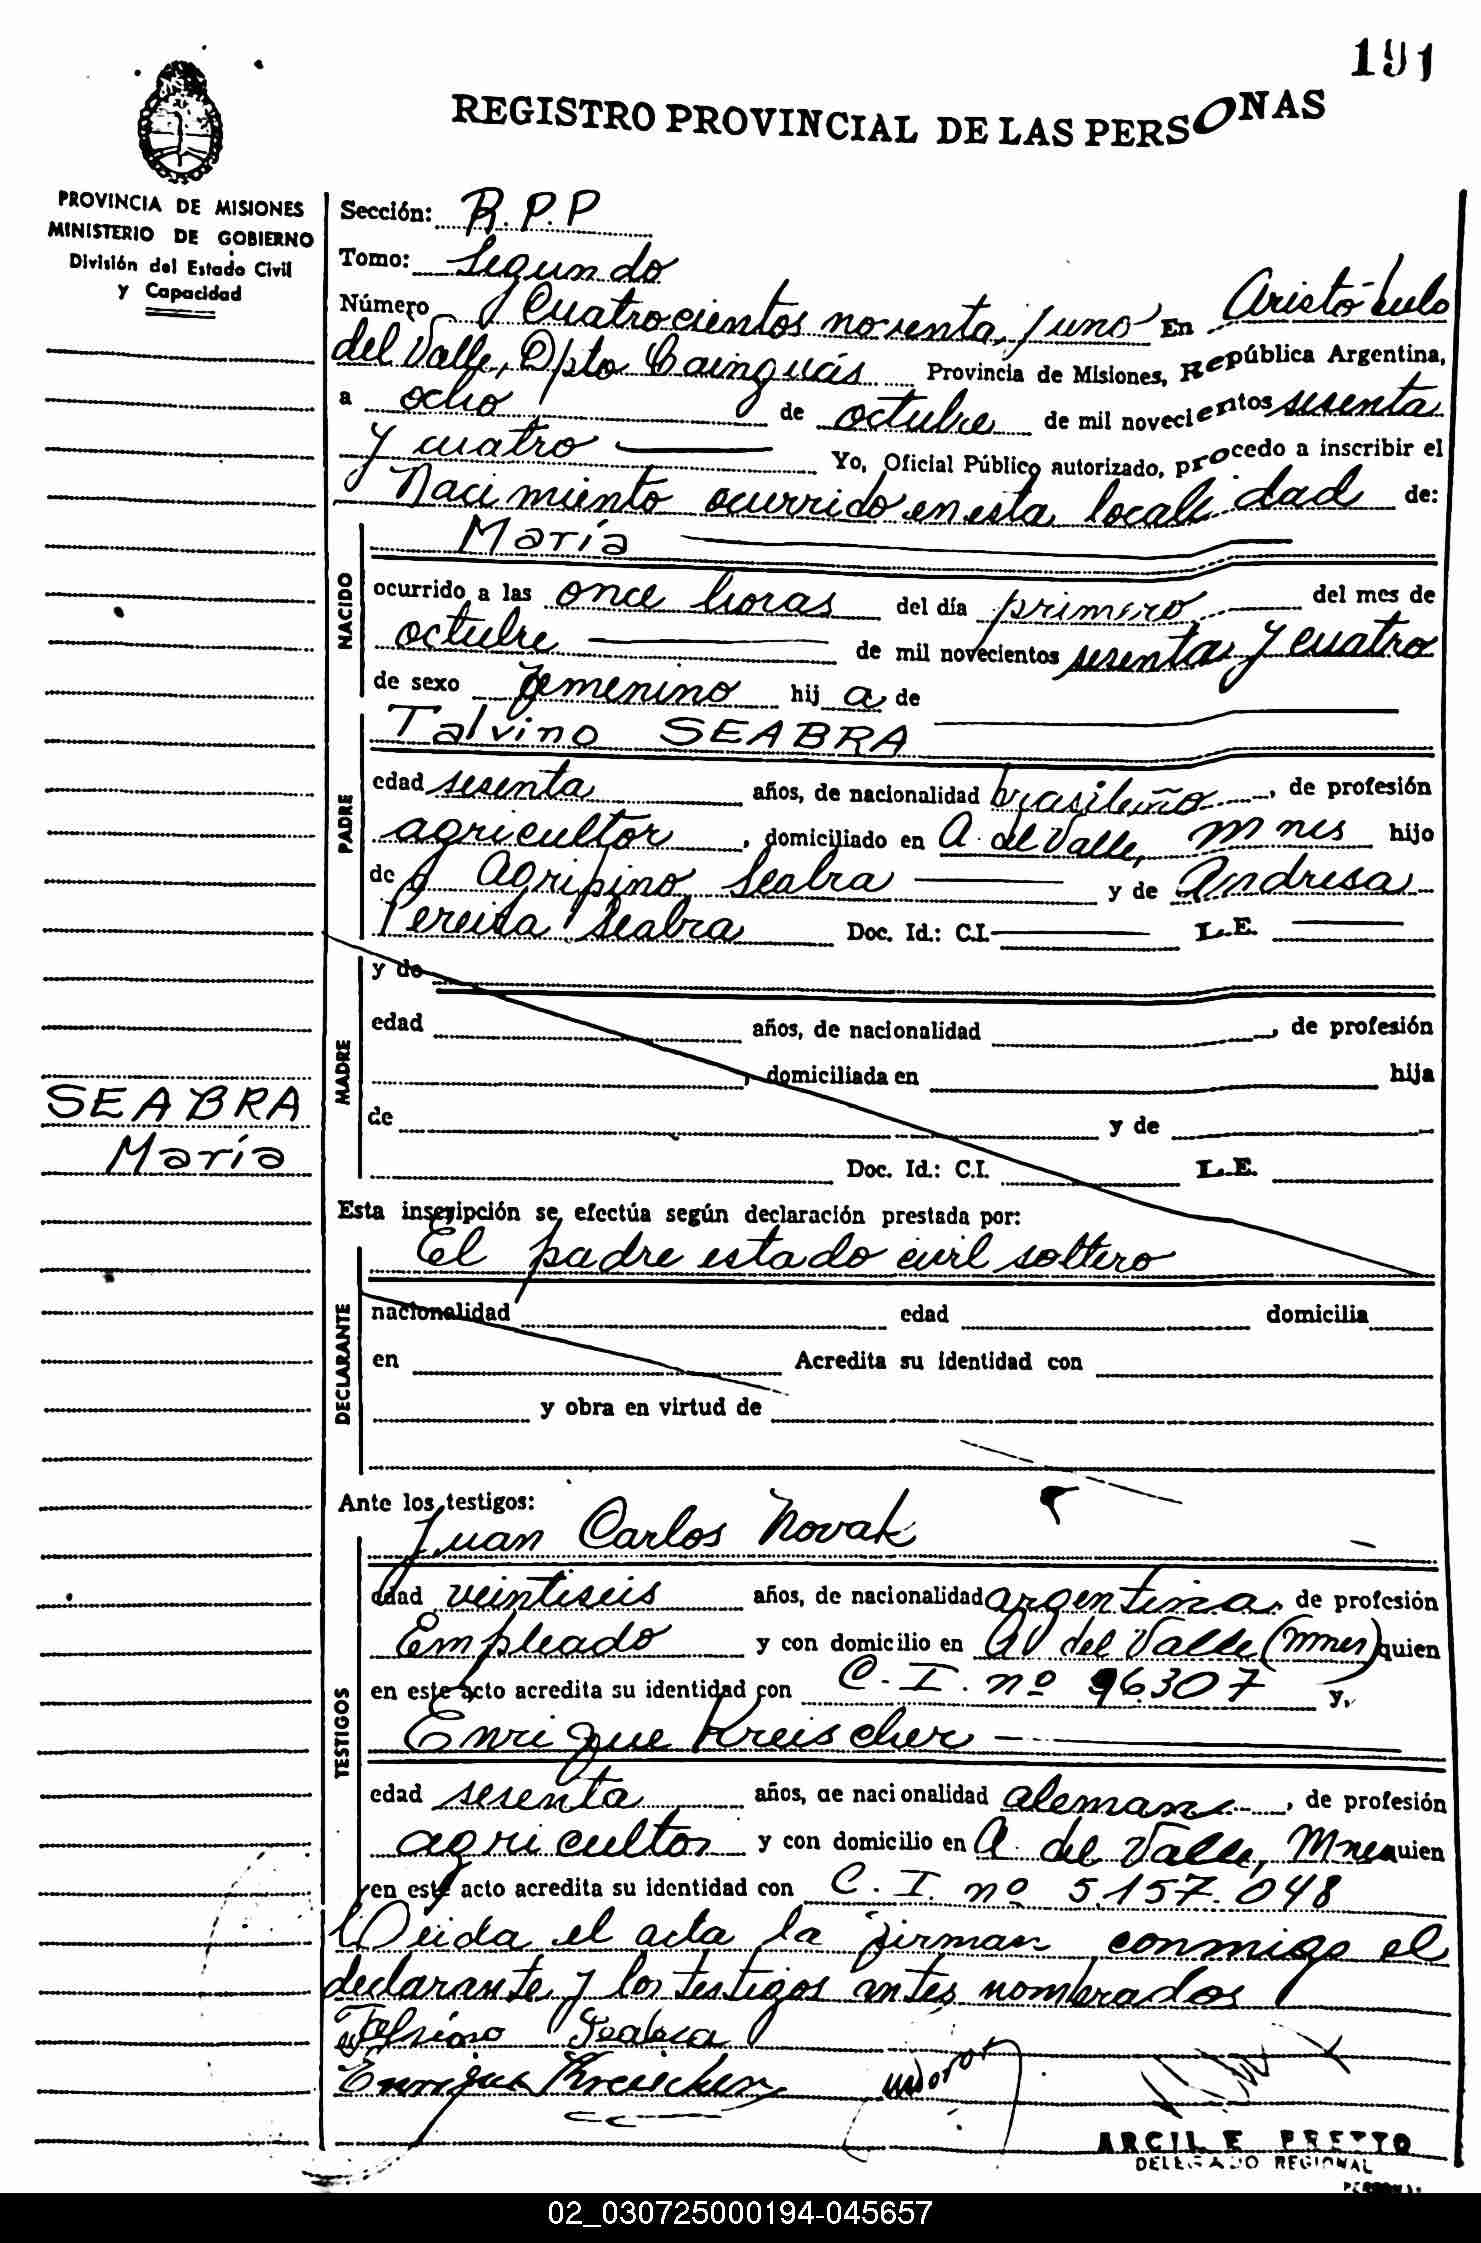 191
REGISTRO PROVINCIAL DE LAS PERSONAS
PROVINCIA DE MISIONES
MINISTERIO DE GOBIERNO
División del Estado Civil
y Capacidad
Sección: R.P.P
Tomo: Segundo
Número Cuatrocientos noventa y uno En Aristóbulo
del Valle, Dpto Cainguás Provincia de Misiones, República Argentina,
a ocho de octubre de mil novecientos sesenta
y cuatro Yo, Oficial Público autorizado, procedo a inscribir el
Nacimiento ocurrido en esta localidad de:
NACIDO
María
ocurrido a las once horas del día primero del mes de
octubre de mil novecientos sesenta y cuatro
de sexo femenino hij a de
PADRE
Talvino SEABRA
edad sesenta años, de nacionalidad brasileño, de profesión
agricultor, domiciliado en A. del Valle, Mnes hijo
de Agripino Seabra y de Andresa
Pereira Seabra Doc. Id.: C.I. L.E.
MADRE
y de
edad años, de nacionalidad , de profesión
, domiciliada en hija
de y de
Doc. Id.: C.I. L.E.
SEABRA
María
Esta inscripción se efectúa según declaración prestada por:
DECLARANTE
El padre estado civil soltero
nacionalidad edad domicilia
en Acredita su identidad con
y obra en virtud de
Ante los testigos:
TESTIGOS
Juan Carlos Novak
edad veintiseis años, de nacionalidad argentina, de profesión
Empleado y con domicilio en A del Valle (Mnes) quien
en este acto acredita su identidad con C.I. nº 96307 y,
Enrique Kreischer
edad sesenta años, de nacionalidad aleman, de profesión
agricultor y con domicilio en A. del Valle, Mnes quien
en este acto acredita su identidad con C.I. nº 5.157.048
Leida el acta la firman conmigo el
declarante y los testigos antes nombrados
Seabra
Enrique Kreischer
ARCILE PRETTO
DELEGADO REGIONAL
02_030725000194-045657